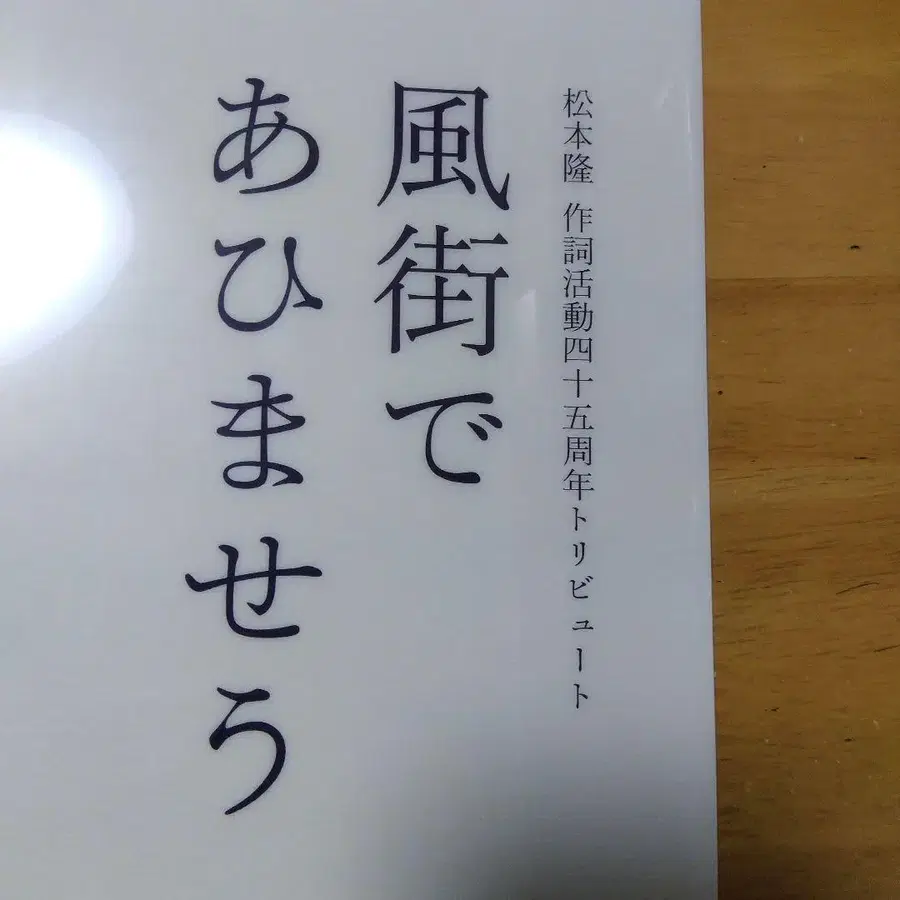 松本隆 作詞活動四十五周年トリビュート
風街で
あひませう